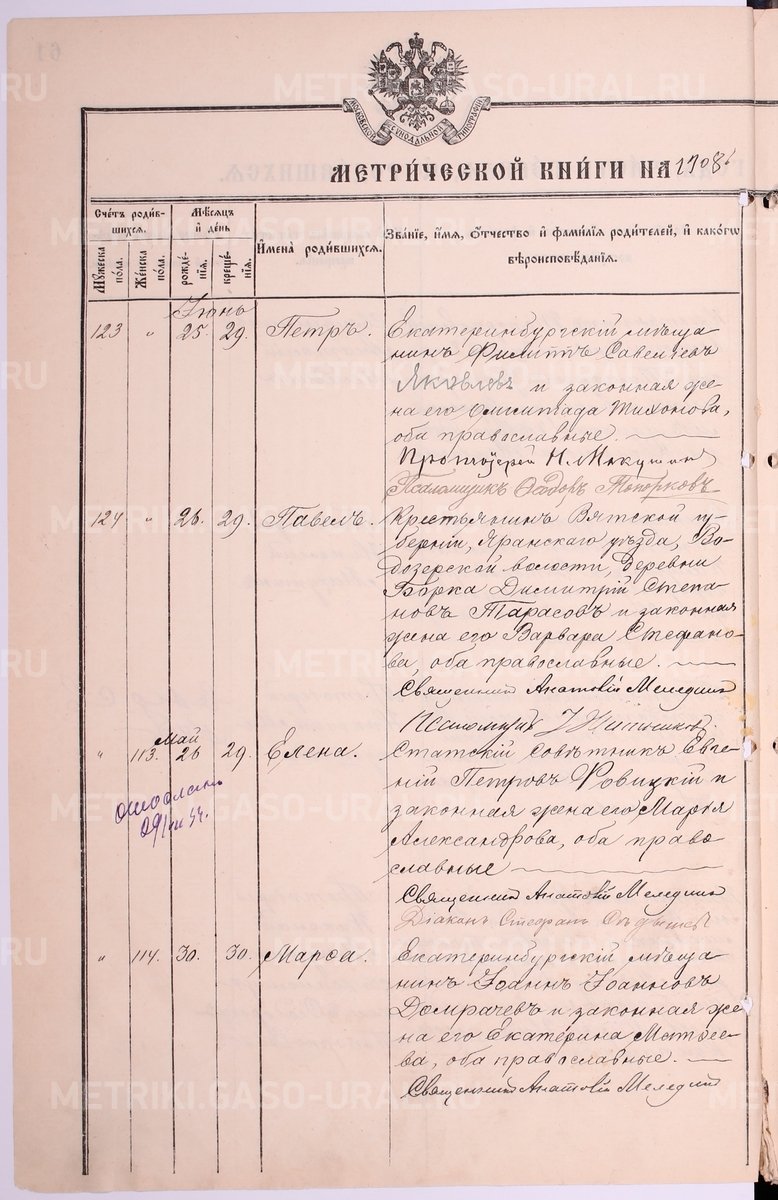 МОСКОВСКОЙ СѴНОДАЛЬНОЙ ТИПОГРАФІИ
МЕТРИ́ЧЕСКОЙ КНИ́ГИ НА 1908
Сче́тъ роди́вшихся.
Мѣ́сяцъ и́ де́нь
И҆мена̀ роди́вшихся.
Зва́нїе, и҆́мѧ, ѻ҆́тчество и҆ фами́лїѧ роди́телей, и҆ како́гѡ
вѣроисповѣ́данїѧ.
Мꙋ́жеска по́ла.
Же́нска по́ла.
рожде́нїѧ.
креще́нїѧ.
Іюнь
123 " 25. 29. Петръ. Екатеринбургскій мѣща
нинъ Филиппъ Савельевъ
Яковлевъ и законная же-
на его Олимпіада Тихонова,
оба православные.
Протоіерей Н. Микушин
Псаломщикъ Топорковъ
124 " 26. 29. Павелъ. Крестьянинъ Вятской гу-
берніи, Яранскаго уѣзда, Во-
дозерской волости, деревни
Борка Димитрій Степа-
новъ Тарасовъ и законная
жена его Варвара Стефано-
ва, оба православные.
Священникъ Анатолій Меледин
Псаломщикъ
Май
" 113. 26 29. Елена. Статскій совѣтникъ Евге-
ній Петровъ Ровицкій и
законная жена его Марія
Александрова, оба право
славные
Священникъ Анатолій Меледин
Діаконъ Стефанъ
" 114. 30. 30. Марѳа. Екатеринбургскій мѣща
нинъ Іоаннъ Іоанновъ
Домрачевъ и законная же
на его Екатерина Матѳее-
ва, оба православные.
Священникъ Анатолій Меледин
METRIKI.GASO-URAL.RU